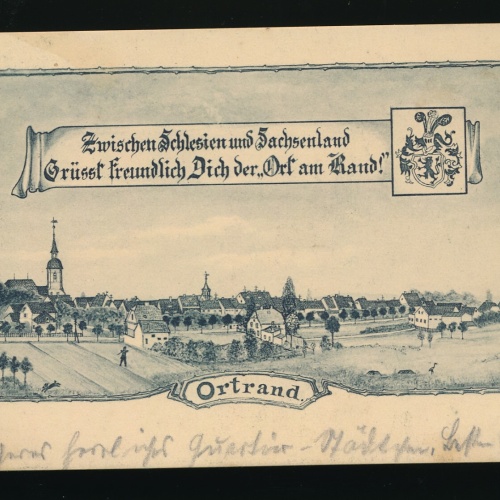 Zwischen Schlesien und Sachsenland
Grüsst freundlich Dich der „Ort am Rand!“
Ortrand.
herrliches Quartier-Städtchen.